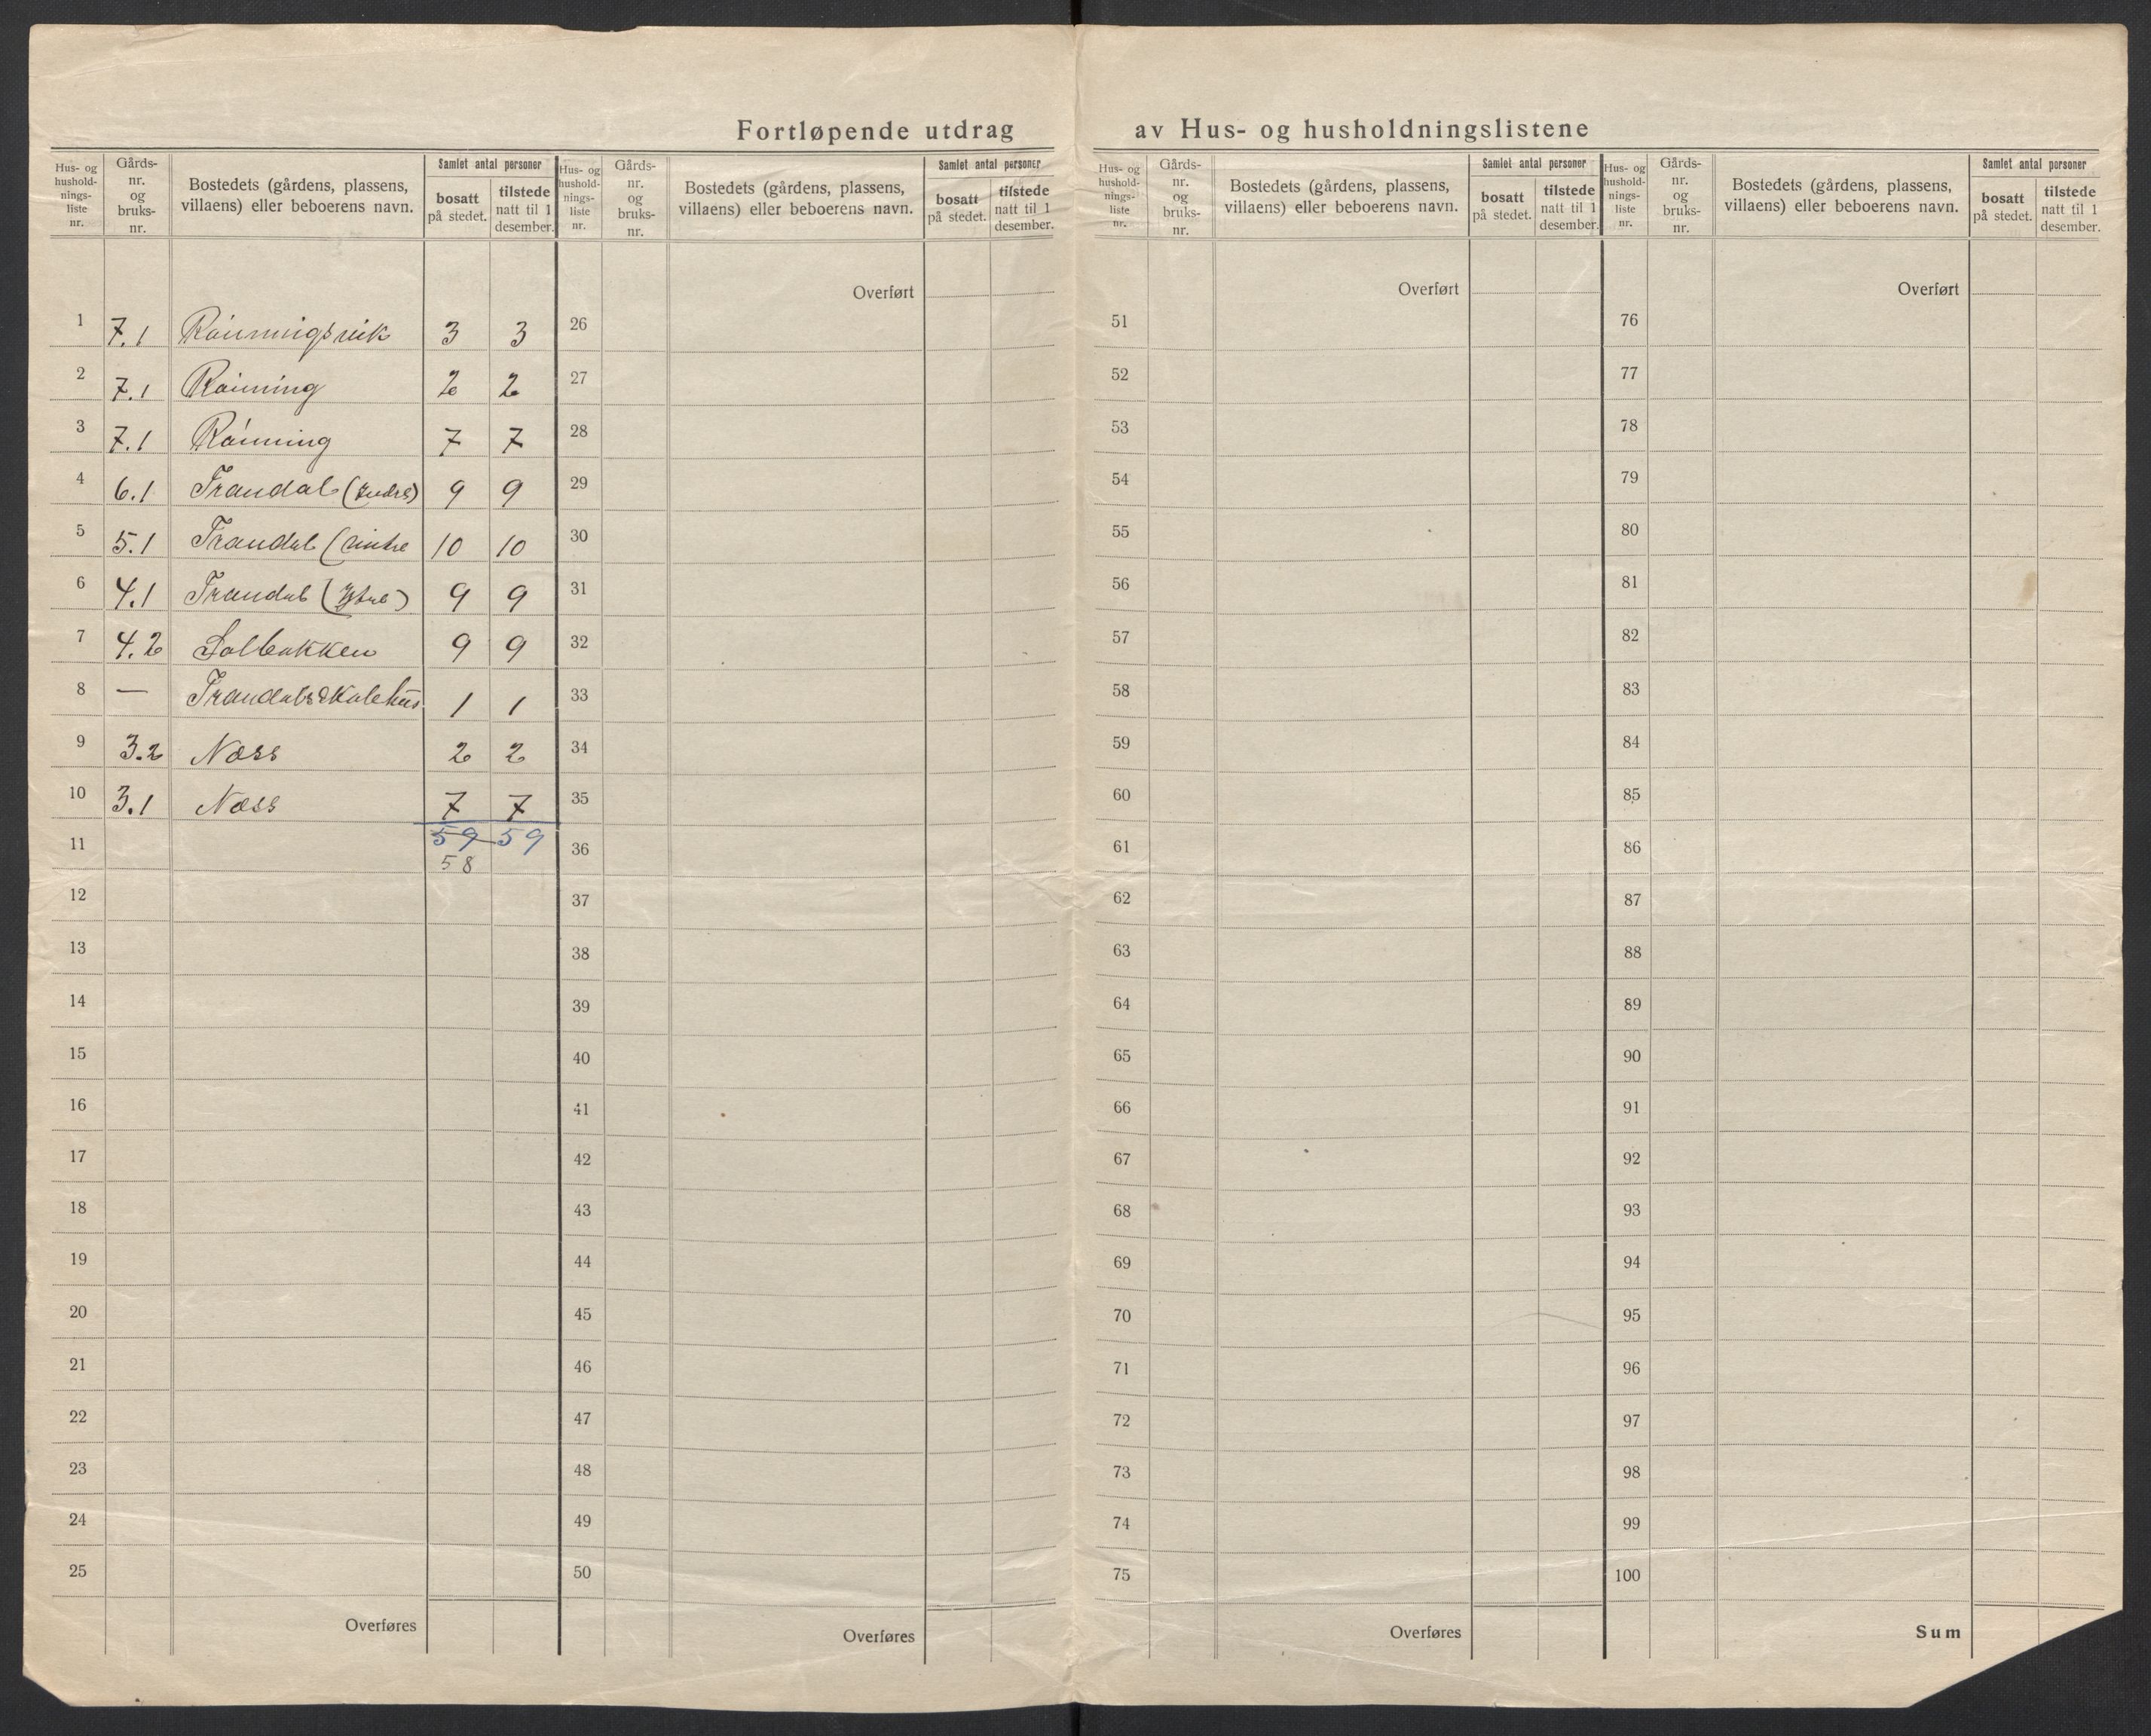 Fortløpende utdrag av Hus- og husholdningslistene
Hus- og hushold-nings-liste nr.
Gårds-nr. og bruks-nr.
Bostedets (gårdens, plassens, villaens) eller beboerens navn.
Samlet antal personer
bosatt på stedet.
tilstede natt til 1 desember.
Hus- og hushold-nings-liste nr.
Gårds-nr. og bruks-nr.
Bostedets (gårdens, plassens, villaens) eller beboerens navn.
Samlet antal personer
bosatt på stedet.
tilstede natt til 1 desember.
Hus- og hushold-nings-liste nr.
Gårds-nr. og bruks-nr.
Bostedets (gårdens, plassens, villaens) eller beboerens navn.
Samlet antal personer
bosatt på stedet.
tilstede natt til 1 desember.
Hus- og hushold-nings-liste nr.
Gårds-nr. og bruks-nr.
Bostedets (gårdens, plassens, villaens) eller beboerens navn.
Samlet antal personer
bosatt på stedet.
tilstede natt til 1 desember.
Overført Overført Overført
1 7.1 3 3 26 51 76
2 7.1 2 2 27 52 77
3 7.1 Rónning 7 7 28 53 78
4 6.1 Trandal (Indre) 9 9 29 54 79
5 5.1 Trandal ( 10 10 30 55 80
6 4.1 Trandal (Ytre) 9 9 31 56 81
7 4.2 Solbakken 9 9 32 57 82
8 — Trandalsskolehus 1 1 33 58 83
9 3.2 Næss 2 2 34 59 84
10 3.1 Næss 7 7 35 60 85
11 59 59 36 61 86
58
12 37 62 87
13 38 63 88
14 39 64 89
15 40 65 90
16 41 66 91
17 42 67 92
18 43 68 93
19 44 69 94
20 45 70 95
21 46 71 96
22 47 72 97
23 48 73 98
24 49 74 99
25 50 75 100
Overføres Overføres Overføres Sum